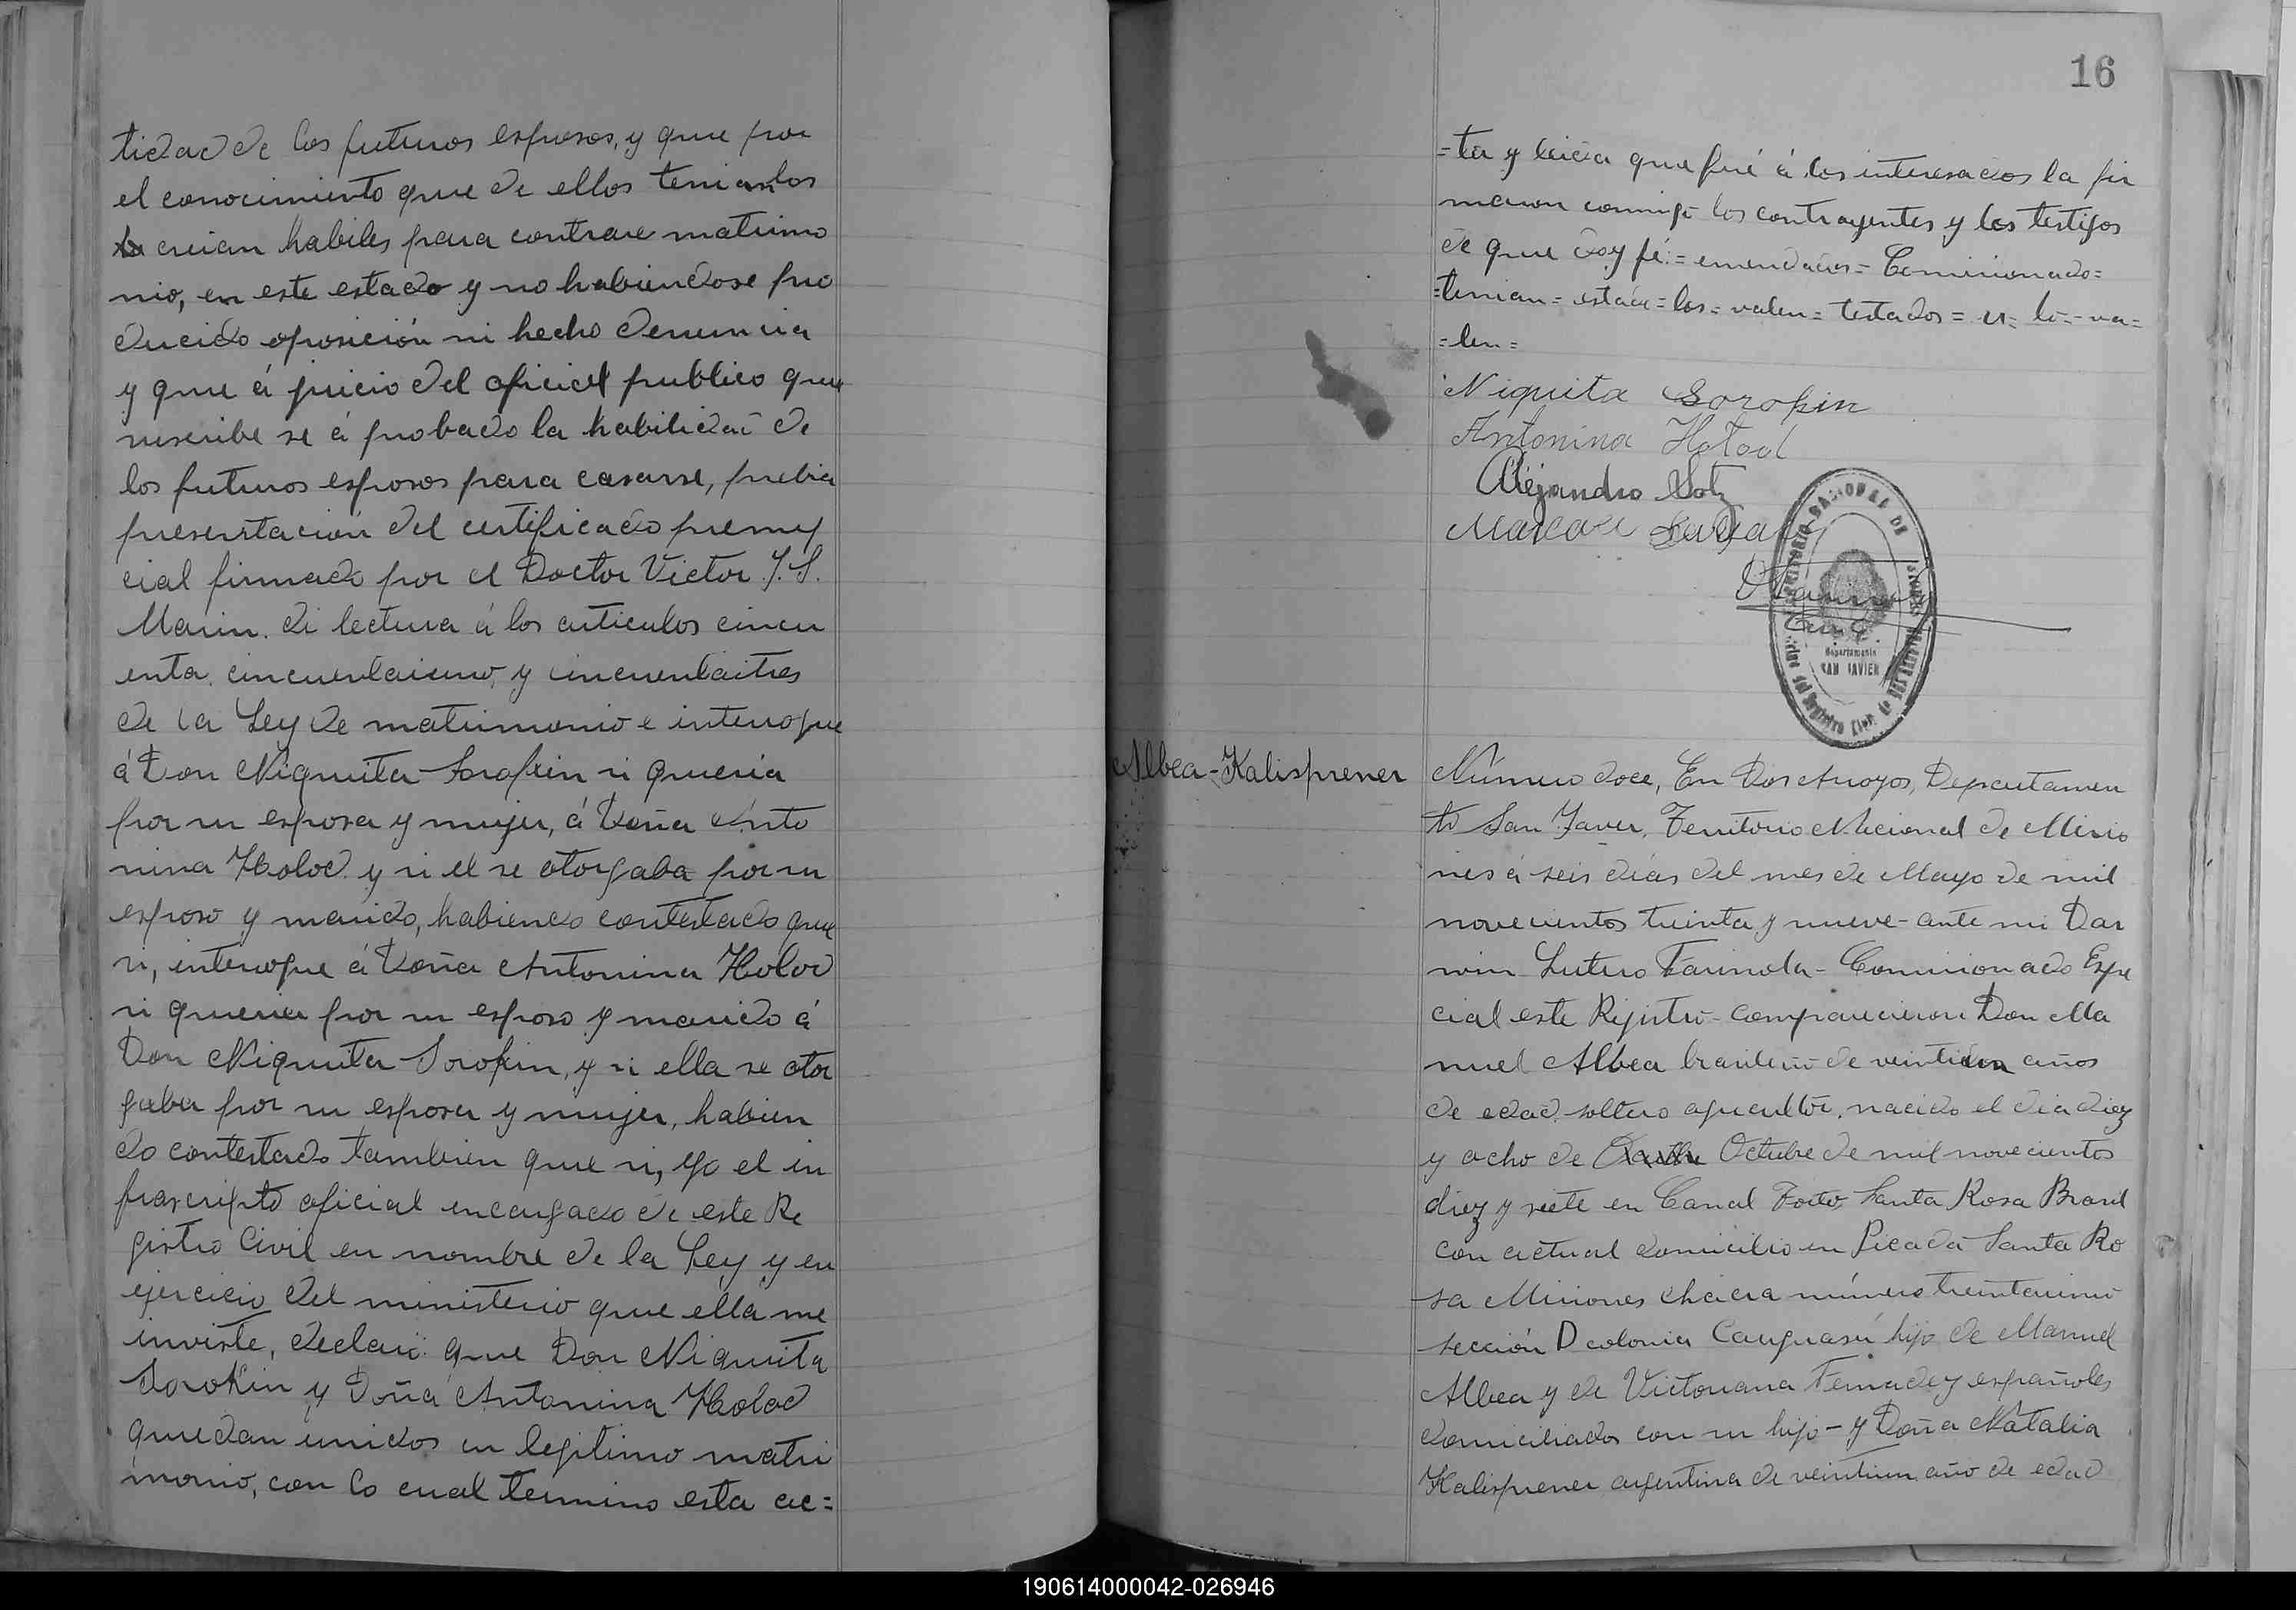 tidad de los futuros esposos, y que por
el conocimiento que de ellos tenian los
creian habiles para contraer matrimo
nio, en este estado y no habiendose pro
ducido oposición ni hecho denuncia
y que á juicio del oficial publico que
suscribe se á probado la habilidad de
los futuros esposos para casarse, prebia
presentacion del certificado prenup
cial firmado por el Doctor Victor J. S.
Marin. di lectura á los articulos cincu
enta, cincuentaiuno, y cincuentaitres
de la Ley de matrimonio e interrogue
á Don Niquita Sorokin si queria
por su esposa y mujer, á Doña Anto
nina Holod y si el se otorgaba por su
esposo y marido, habiendo contestado que
si, interrogue á Doña Antonina Holod
si queria por su esposo y marido á
Don Niquita Sorokin, y si ella se otor
gaba por su esposa y mujer, habien
do contestado tambien que si, yo el in
frascripto oficial encargado de este Re
gistro Civil en nombre de la Ley y en
ejercicio del ministerio que ella me
inviste, declaro: que Don Niquita
Sorokin y Doña Antonina Holod
quedan unidos en legitimo matri
monio, con lo cual termino esta ac=
16
=ta y leida que fué á los interesados la fir
maron conmigo los contrayentes y los testigos
de que doy fé:= emendados= Comisionado=
=tenian= estado= los= valen= testados= lo= va=
=len=
Niquita Sorokin
Antonina Holod
Alejandro Sotz
TERRITORIO NACIONAL DE MISIONES
Departamento
SAN JAVIER
Albea-Kalisprener
Número doce, En Dos Arroyos, Departamen
to San Javer, Territorio Nacional de Misio
nes á seis dias del mes de Mayo de mil
novecientos treinta y nueve- ante mi Dar
win Lutero Farinola- Comisionado Espe
cial este Rejistro- comparecieron Don Ma
nuel Albea brasileño de veintiun años
de edad, soltero agricultor, nacido el dia diez
y ocho de Octubre de mil novecientos
diez y siete en Canal Forto, Santa Rosa Brasil
con actual domicilio en Picada Santa Ro
sa Misiones chacra número treintaiuno
sección D colonia Caaguasú hijo de Manuel
Albea y de Victoriana Fernadez españoles
domiciliados con su hijo- y Doña Natalia
Kalisprener argentina de veintiun año de edad
190614000042-026946